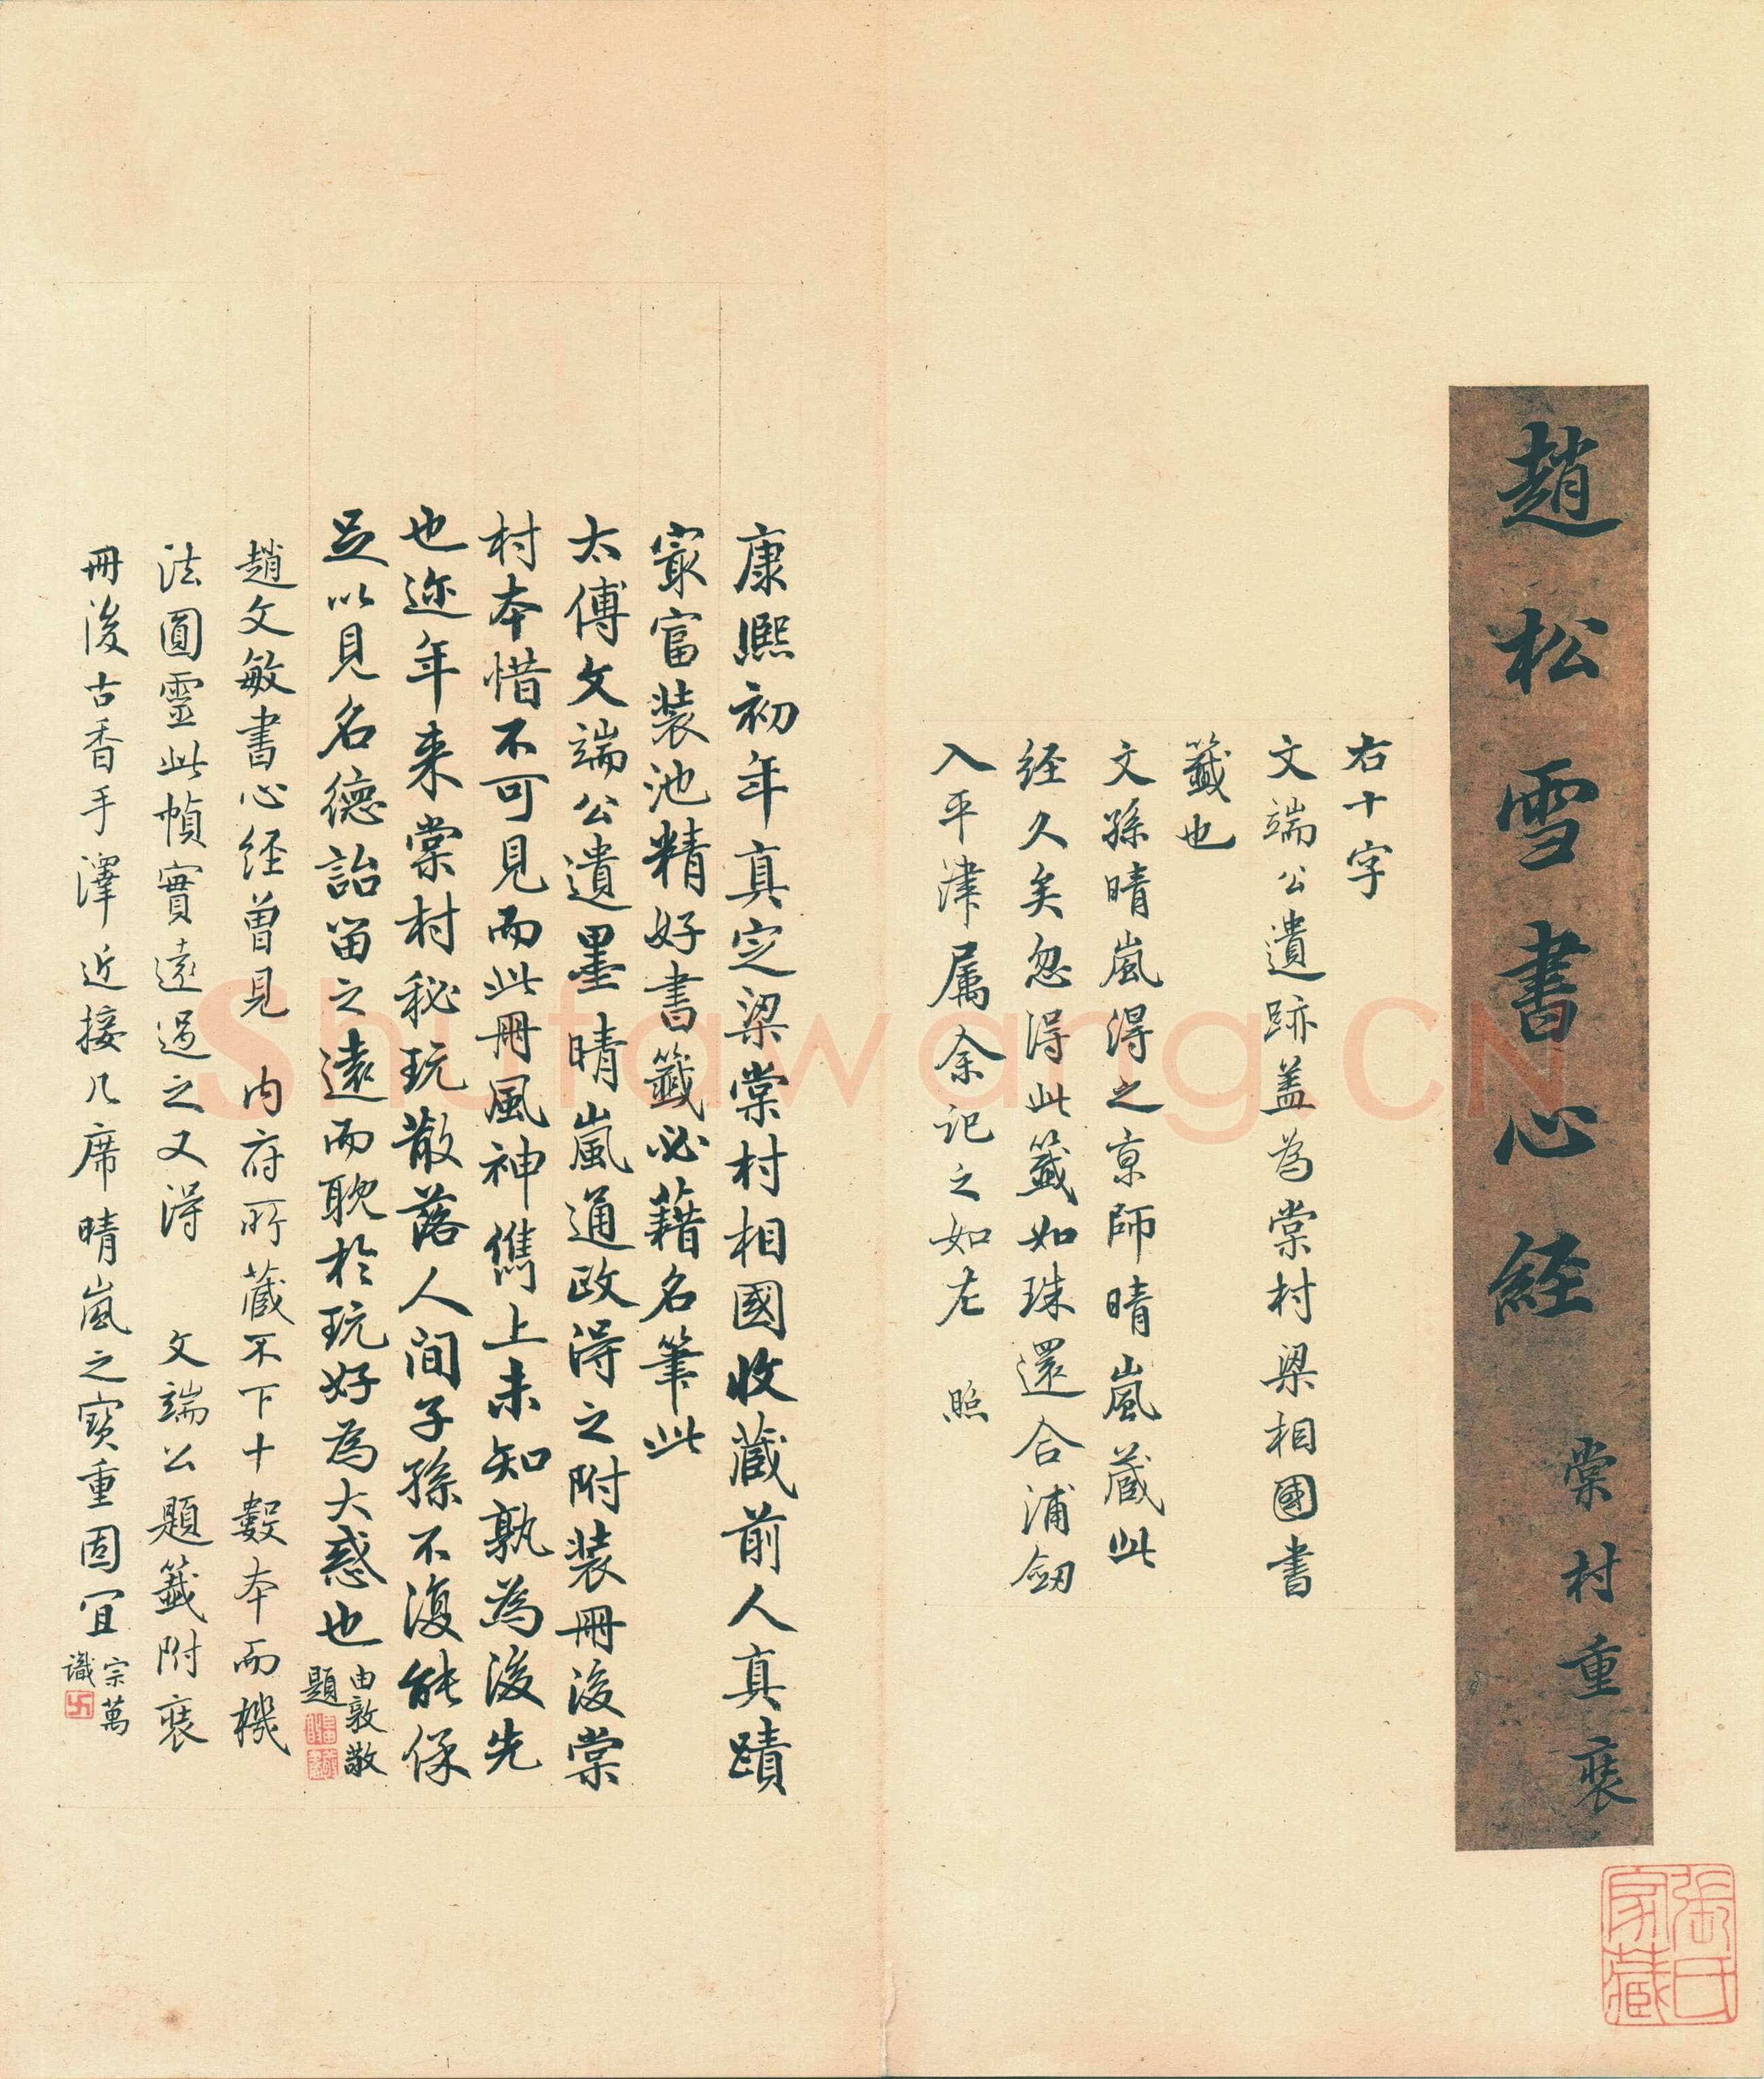 趙松雪書心経
棠村重裝
右十字
文端公遺跡盖為棠村梁相國書
籖也
文孫晴嵐得之京師晴嵐蔵此
経久矣忽得此籖如珠還合浦劒
入平津属余記之如左 照
康熙初年真定梁棠村相國收蔵前人真蹟
寂富裝池精好書籖必藉名筆此
太傅文端公遺墨晴嵐通政得之附裝冊後棠
村本惜不可見而此冊風神儁上未知孰為後先
也迩年来棠村秘玩散落人间子孫不復能保
足以見名德詒留之遠而耽於玩好為大惑也
由敦敬
題
趙文敏書心経曾見 内府所藏不下十數本而機
法圓靈此幀實遠過之又得 文端公題籖附裝
冊後古香手澤近接几席晴嵐之寳重固宜
宗萬
識
卍
張氏家藏
Shufawang.CN